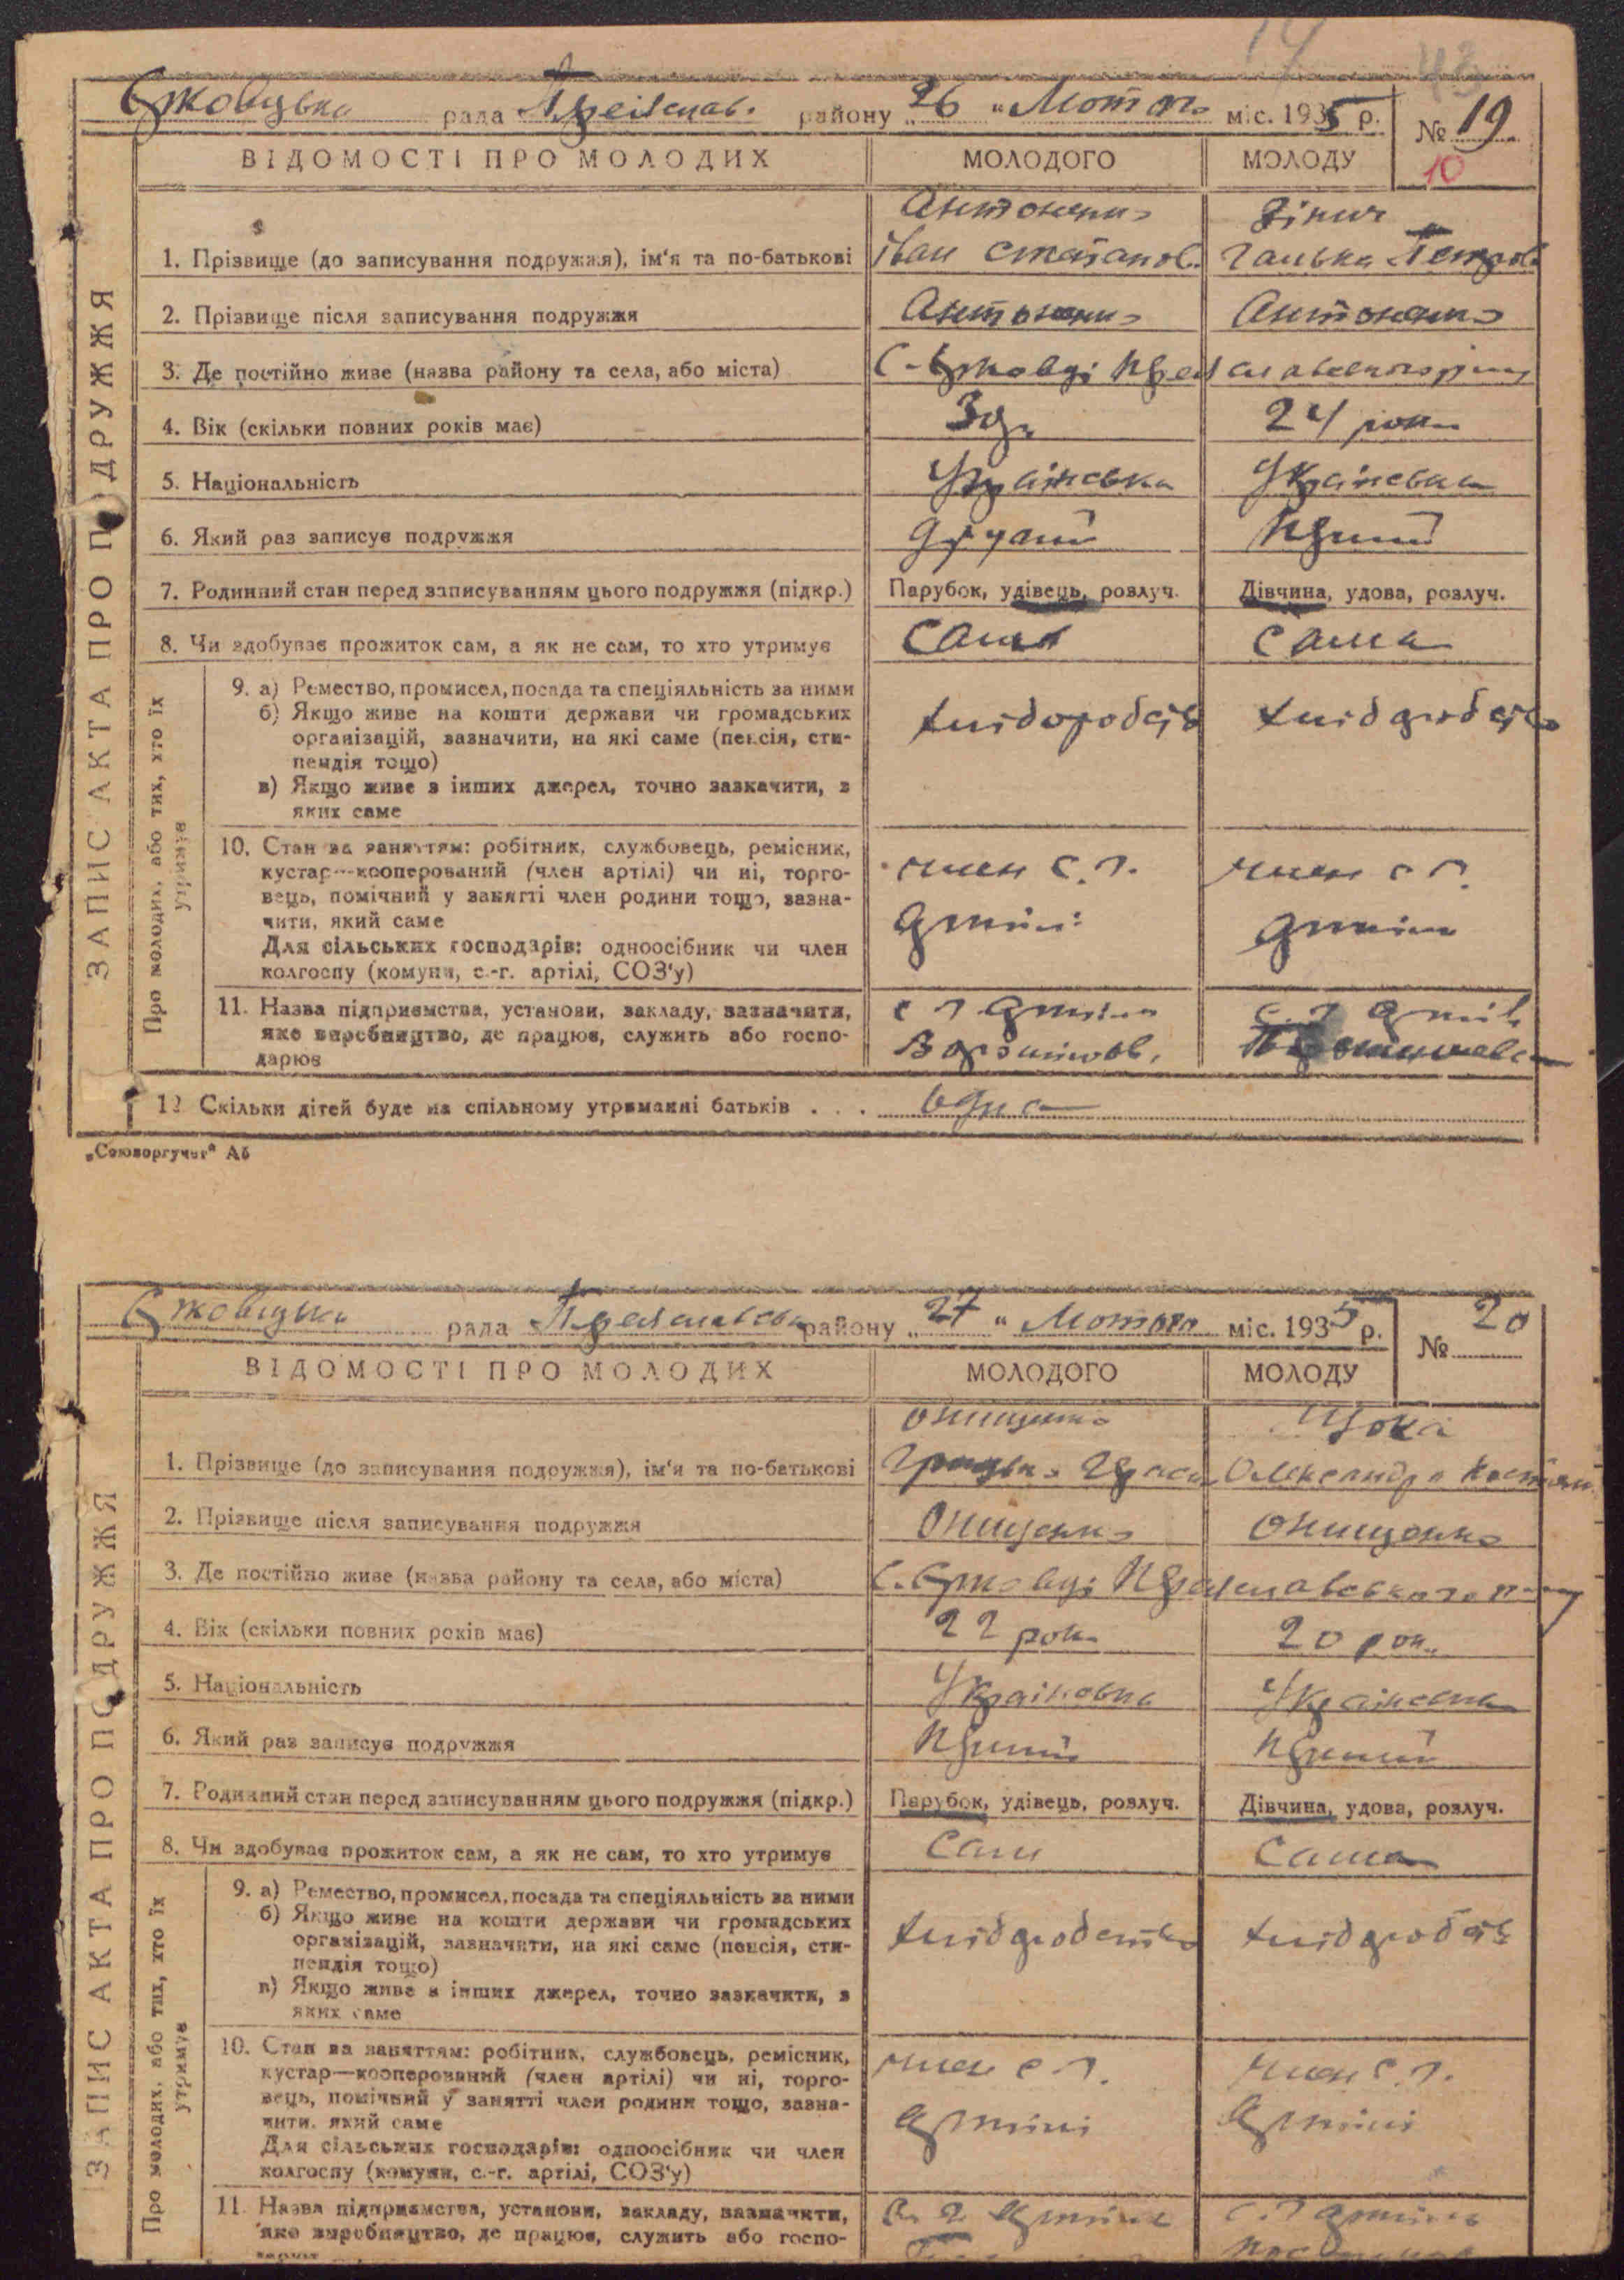 17 43
Єрковецька рада Переяслав. району „26“ Лютого міс. 1935 р. № 19
10
ВІДОМОСТІ ПРО МОЛОДИХ МОЛОДОГО МОЛОДУ
ЗАПИС АКТА ПРО ПОДРУЖЖЯ
Антоненко Зінич
1. Прізвище (до записування подружжя), ім'я та по-батькові Іван Степанов. Галька Петров
2. Прізвище після записування подружжя Антоненко Антоненко
3. Де постійно живе (назва району та села, або міста) С. Єрковці Переяславського району
4. Вік (скільки повних років має) 24 роки
5. Національність Українська Українська
6. Який раз записує подружжя другий Перший
7. Родинний стан перед записуванням цього подружжя (підкр.) Парубок, удівець, розлуч. Дівчина, удова, розлуч.
8. Чи здобуває прожиток сам, а як не сам, то хто утримує сам сама
Про молодих, або тих, хто їх утримує
9. а) Ремество, промисел, посада та спеціяльність за ними
б) Якщо живе на кошти держави чи громадських
організацій, зазначити, на які саме (пенсія, сти-
пендія тощо)
в) Якщо живе з інших джерел, точно зазначити, з
яких саме
хлібороб хлібороб
10. Стан за заняттям: робітник, службовець, ремісник,
кустар—кооперований (член артілі) чи ні, торго-
вець, помічний у занятті член родини тощо, зазна-
чити, який саме
Для сільських господарів: одноосібник чи член
колгоспу (комуни, с.-г. артілі, СОЗ'у)
член с. г. член с г.
артілі артілі
11. Назва підприємства, установи, закладу, зазначити,
яке виробництво, де працює, служить або госпо-
дарює
с г артіль с. г артіль
Ворошилов.
12 Скільки дітей буде на спільному утриманні батьків . . . одна
„Союзоргучет“ А6
Єрковецька рада Переяславськ району „27“ Лютого міс. 1935 р. № 20
ВІДОМОСТІ ПРО МОЛОДИХ МОЛОДОГО МОЛОДУ
ЗАПИС АКТА ПРО ПОДРУЖЖЯ
Онищенко Цока
1. Прізвище (до записування подружжя), ім'я та по-батькові Грицько Герас. Олександра Костян.
2. Прізвище після записування подружжя Онищенко Онищенко
3. Де постійно живе (назва району та села, або міста) С. Єрковці Переяславського району
4. Вік (скільки повних років має) 22 роки 20 рок.
5. Національність Українська Українська
6. Який раз записує подружжя Перший Перший
7. Родинний стан перед записуванням цього подружжя (підкр.) Парубок, удівець, розлуч. Дівчина, удова, розлуч.
8. Чи здобуває прожиток сам, а як не сам, то хто утримує сам сама
Про молодих, або тих, хто їх утримує
9. а) Ремество, промисел, посада та спеціяльність за ними
б) Якщо живе на кошти держави чи громадських
організацій, зазначити, на які саме (пенсія, сти-
пендія тощо)
в) Якщо живе з інших джерел, точно зазначити, з
яких саме
10. Стан за заняттям: робітник, службовець, ремісник,
кустар—кооперований (член артілі) чи ні, торго-
вець, помічний у занятті член родини тощо, зазна-
чити, який саме
Для сільських господарів: одноосібник чи член
колгоспу (комуни, с.-г. артілі, СОЗ'у)
член с г. член с. г.
артілі артілі
11. Назва підприємства, установи, закладу, зазначити,
яке виробництво, де працює, служить або госпо-
с. г артіль с. г артіль